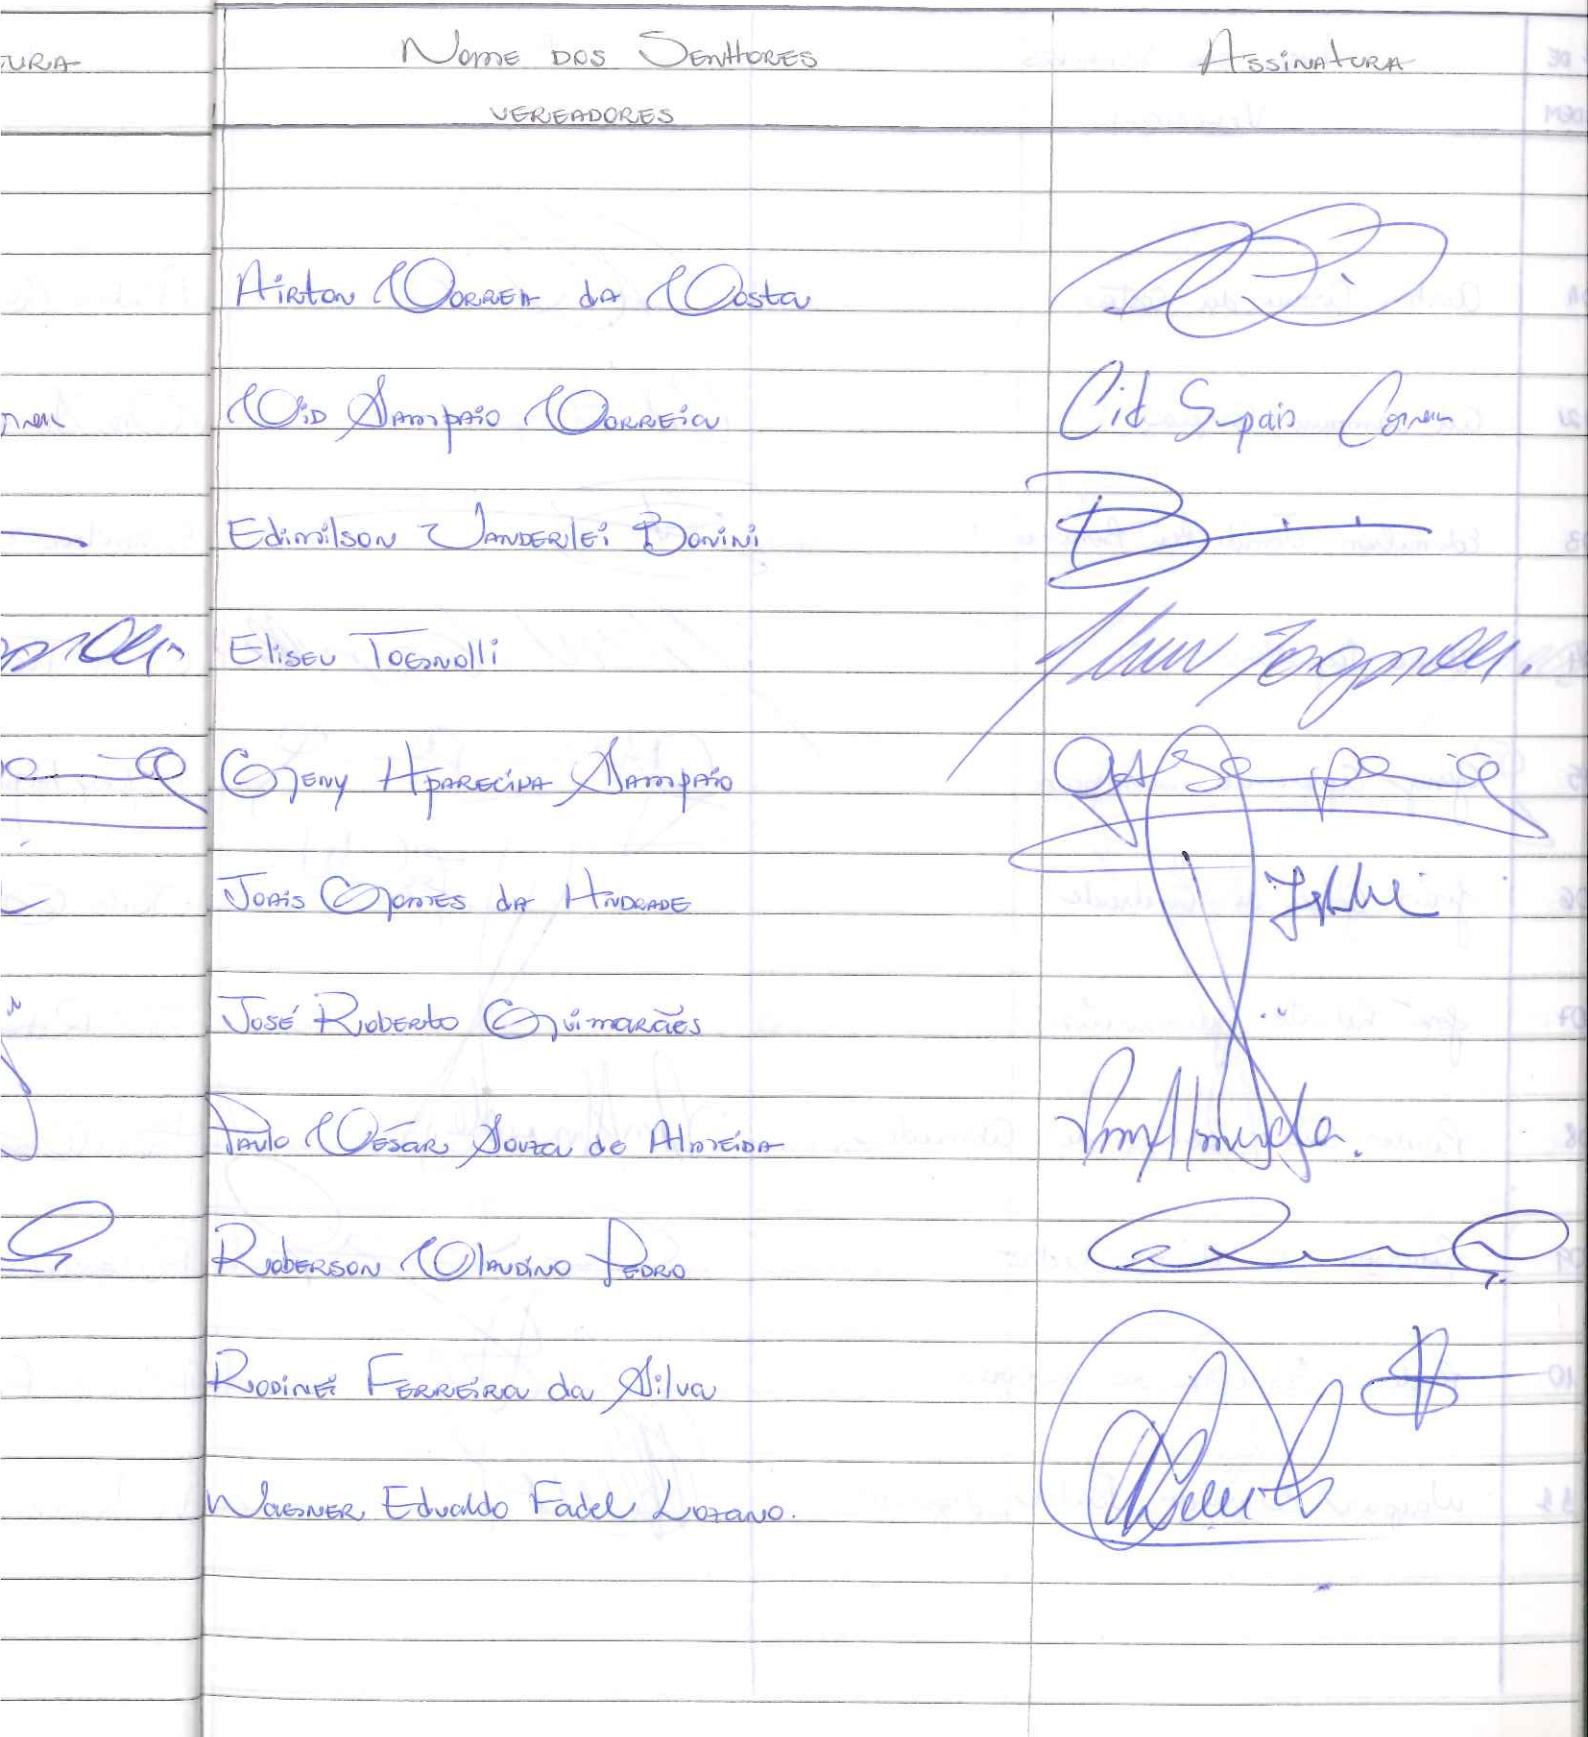 URA
Nome dos Senhores Assinatura
Vereadores
Airton Correa da Costa
Cid Sampaio Correia Cid Sampaio Correia
Edimilson Vanderlei Bonini
Eliseu Tognolli Tognolli.
Geny Aparecida Sampaio Sampaio
Joais Gomes da Andrade
José Roberto Guimarães
Paulo César Souza de Almeida Almeida.
Roberson Claudino Pedro
Rodinei Ferreira da Silva
Wagner Edvaldo Fadel Lozano.